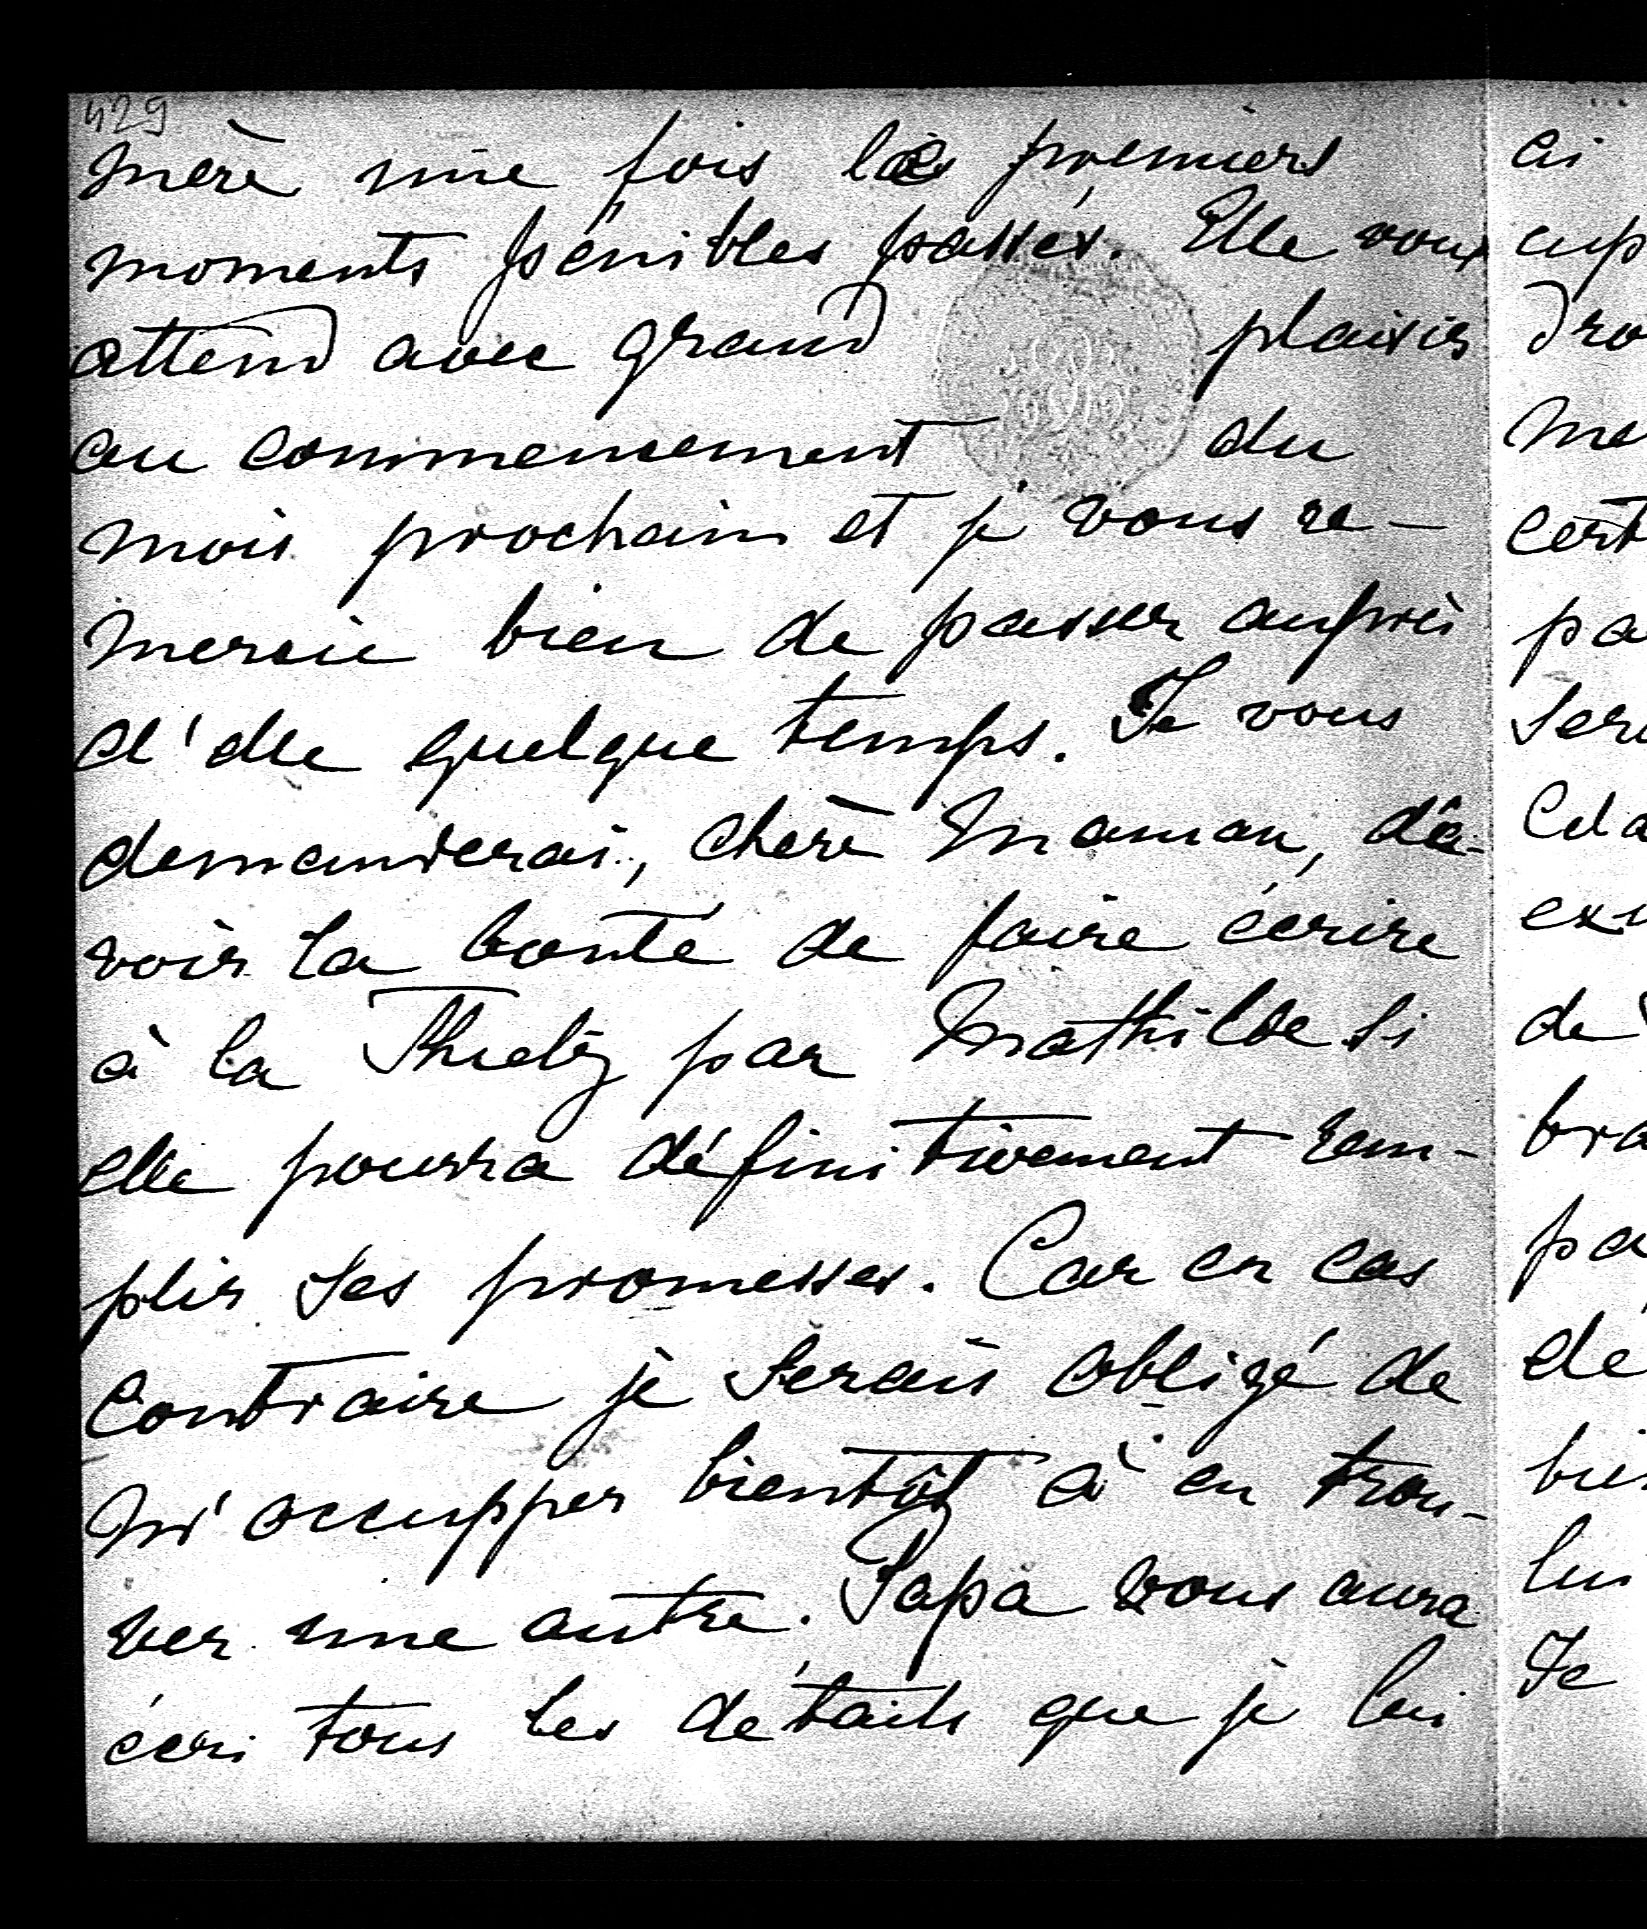 429
mère une fois les premiers
moments pénibles passés. Elle vous
attend avec grand plaisir
au commencement du
mois prochain et je vous re-
mercie bien de passer auprès
d'elle quelque temps. Je vous
demanderai, chère Maman, d'a-
voir la bonté de faire écrire
à la par Mathilde si
elle pourra définitivement rem-
plir ses promesses. Car en cas
contraire je serais obligé de
m'occupper bientôt à en trou-
ver une autre. Papa vous aura
écri tous les détails que je lui
ci
cup
dro
me
cert
pa
ser
Cela
ex
de
bra
pa
dé
bien
lui
Je